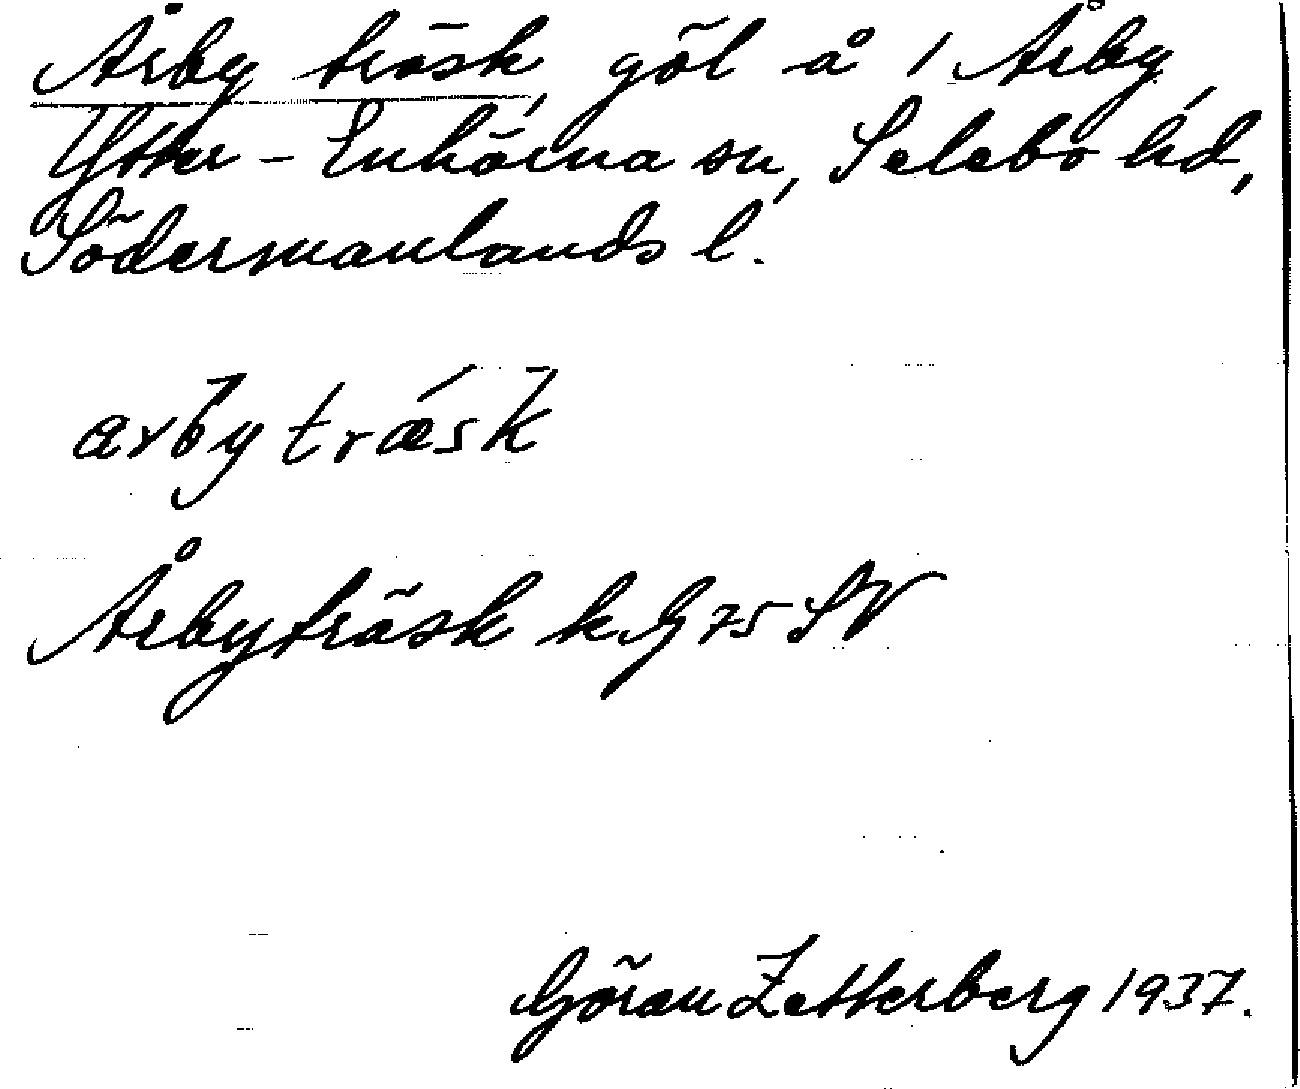 Årby träsk, göl å 1 Årby,
Ytter-Enhörna sn, Selebo hd,
Södermanlands l.
arby træsk
Årbyträsk k.G 75 SV
Göran Zetterberg 1937.